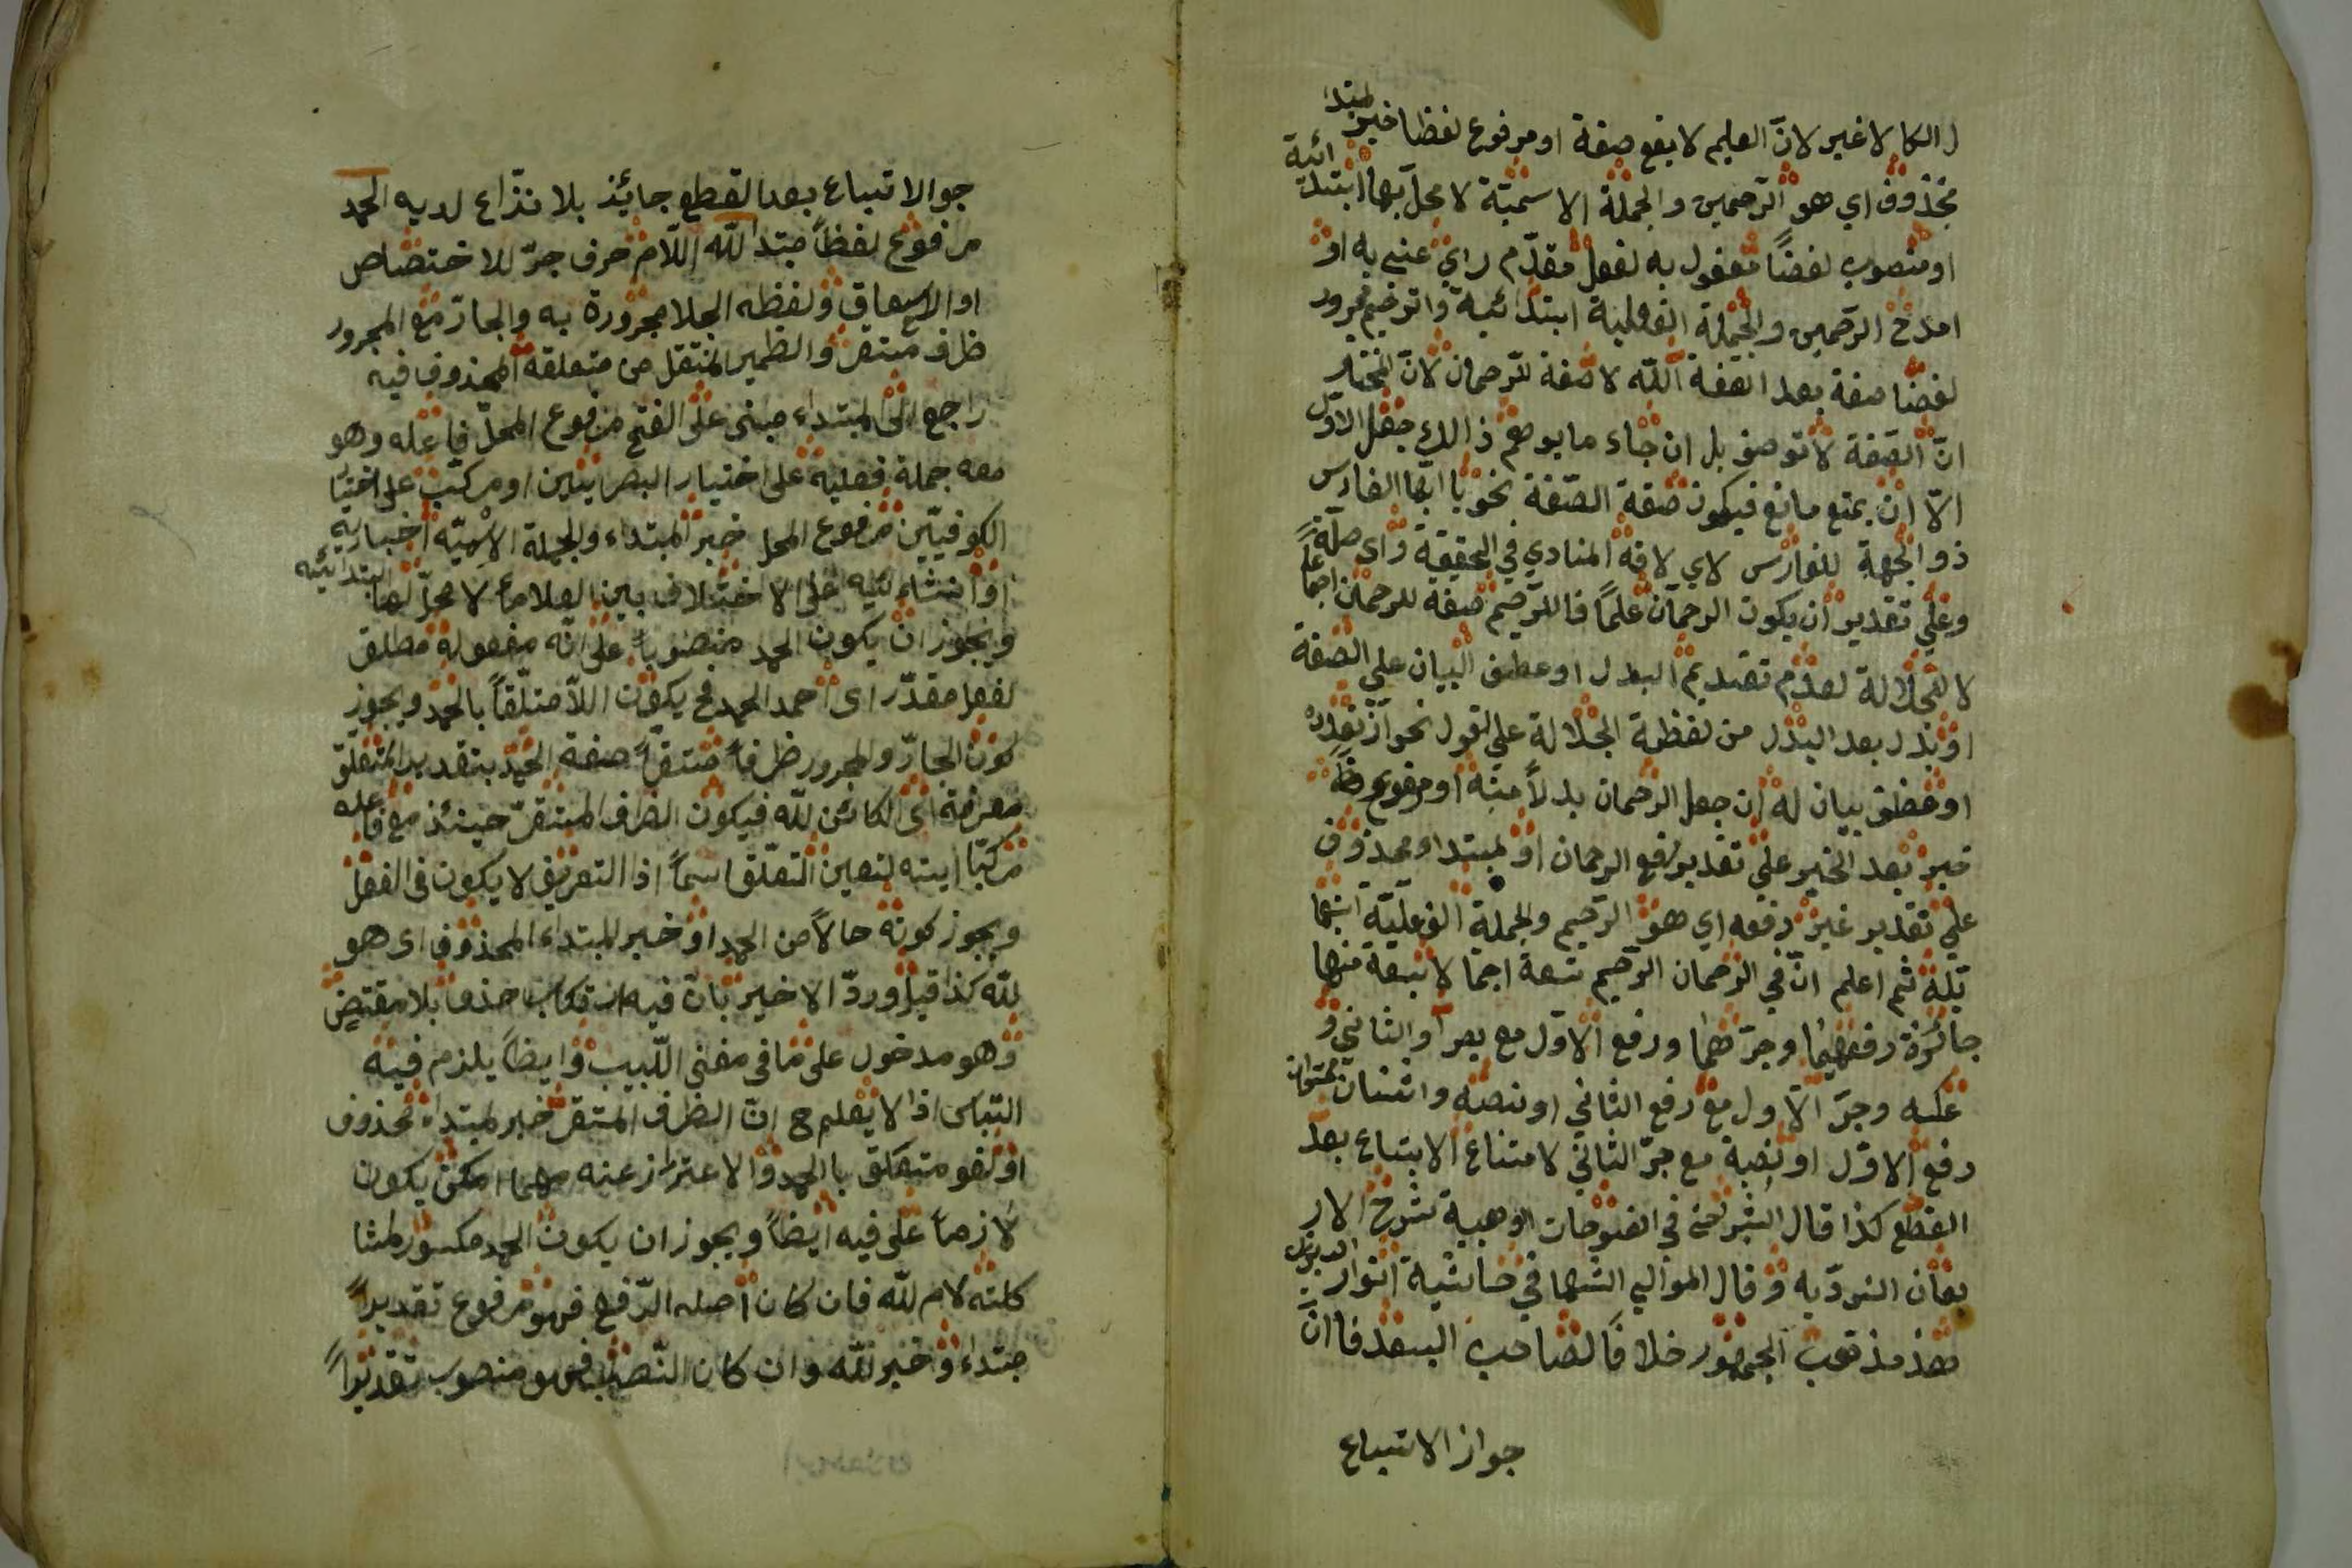 ل الكا لا غير لانّ العلم لا يقع صفة او مرفوع لفظا خبر لمبتدا
محذوف اي هو الرّحمين والجملة الاسميّة لا محلّ بها ابتدائية
او منصوب لفضًا مفعول به لفعل مقدّم راي عني به او
امدح الرّحمين والجملة الفعلية ابتدائية والرّحيم مجرور
لفضًا صفة بعد الصفة اللّه لا صفة للرّحمان لانّ المختار
انّ الصّفة لا توصف بل ان جاء ما يوهم ذالك جعل الاوّل
الّا ان يمتع مانع فيكون صفة الصّفة نحو يا ايّها الفارس
ذو الجّهة للفارس لاي لا فه المنادي في الحقيقة واي صلة
وعلي تقدير ان يكون الرحمان علمًا فالرّحيم صفة للرحمان
لا للجلالة لعدم تقديم البدل او عطف البيان علي الصّفة
او بدل بعد البدل من لفظة الجلالة علي القول نحو از تعداده
او عطف بيان له ان جعل الرحمان بدلاً منه او مرفوع
خبر بعد الخبر علي تقدير رفع الرحمان او لمبتدا محذوف
علي تقدير غير رفعه اي هو الرّحيم والجملة الفعليّة
ثم اعلم انّ في الرحمان الرّحيم تسعة منها
جائزة رفعهما وجرّهما ورفع الاوّل مع الثاني و
عكسه وجرّ الاول مع رفع الثاني او نصبه واثنان ممتنعان
رفع الاوّل او نصبه مع جرّ الثاني لامتناع الاتباع بعد
القطع كذا قال الشبرخي في الفتوحات الوهبية بشرح الار
بعان النووّيه وقال الموالي في حاشية انوار
هذ مذهب الجمهور خلافًا لصاحب البسعد فا انّ
جواز الاتبباع
جوالاتبباع بعد القطع جايئذ بلا نذّاع لديه الحمد
مرفوع لفظاً مبتدا للّه اللّام حرف جرّ للاختصاص
او الاستعاق ولفظه الجلا مجرورة به والجارّ مع المجرور
ظرف مستقر والظمير المنتقل من متعلقه المحذوف فيه
راجع الى المبتداء مبنى على الفتح مرفوع المحلّ فاعله وهو
معه جملة فعلية على اختيار البصرايتين او مركب على اختيا
الكوفيّين مرفوع المحل خبر المبتداء والجملة الاسميّه اخباريه
او انشائيه على الاختلاف بين العلاماء لا محلّ لها ابتدائيّه
ويجوز ان يكون الحمد منصوباً على انّه مفعوله مطلق
لفعل مقدّر اى احمد الحمد فح يكون اللاّ متلّقاً بالحمد ويجوز
كون الجارّ والمجرور ظرفاً مستقرّاً صفة الحمد بتقدير المتعلّق
معرفة اى الكائن للّه فيكون الظرف المستقرّ حينئذ مع فاعله
مركبا لتعين التعلّق اسماً اذا التعريف لا يكون فى الفعل
ويجوز كونه حالاً من الحمد او خبر للمبتداء المحذوف اى هو
للّه كذا قيل وردّ الاخير بان فيه ارتكاب حذف بلا مقتض
وهو مدخول على ما فى مغنى اللّبيب وايضاً يلزم فيه
التباس اذا لا يعلم ح ان الظرف المستقر خبر لمبتداء محذوف
او لغو متعلق با الحمد والاعتراز عنه مهما امكن يكون
لازماً على فيه ايضاً ويجوز ان يكون الحمد مكسور لمشا
كلته لام للّه فان كان اصله الرّفع فهو مرفوع تقديراً
مبتداء وخبر للّه وان كان النّصب فهو منصوب تقديراً